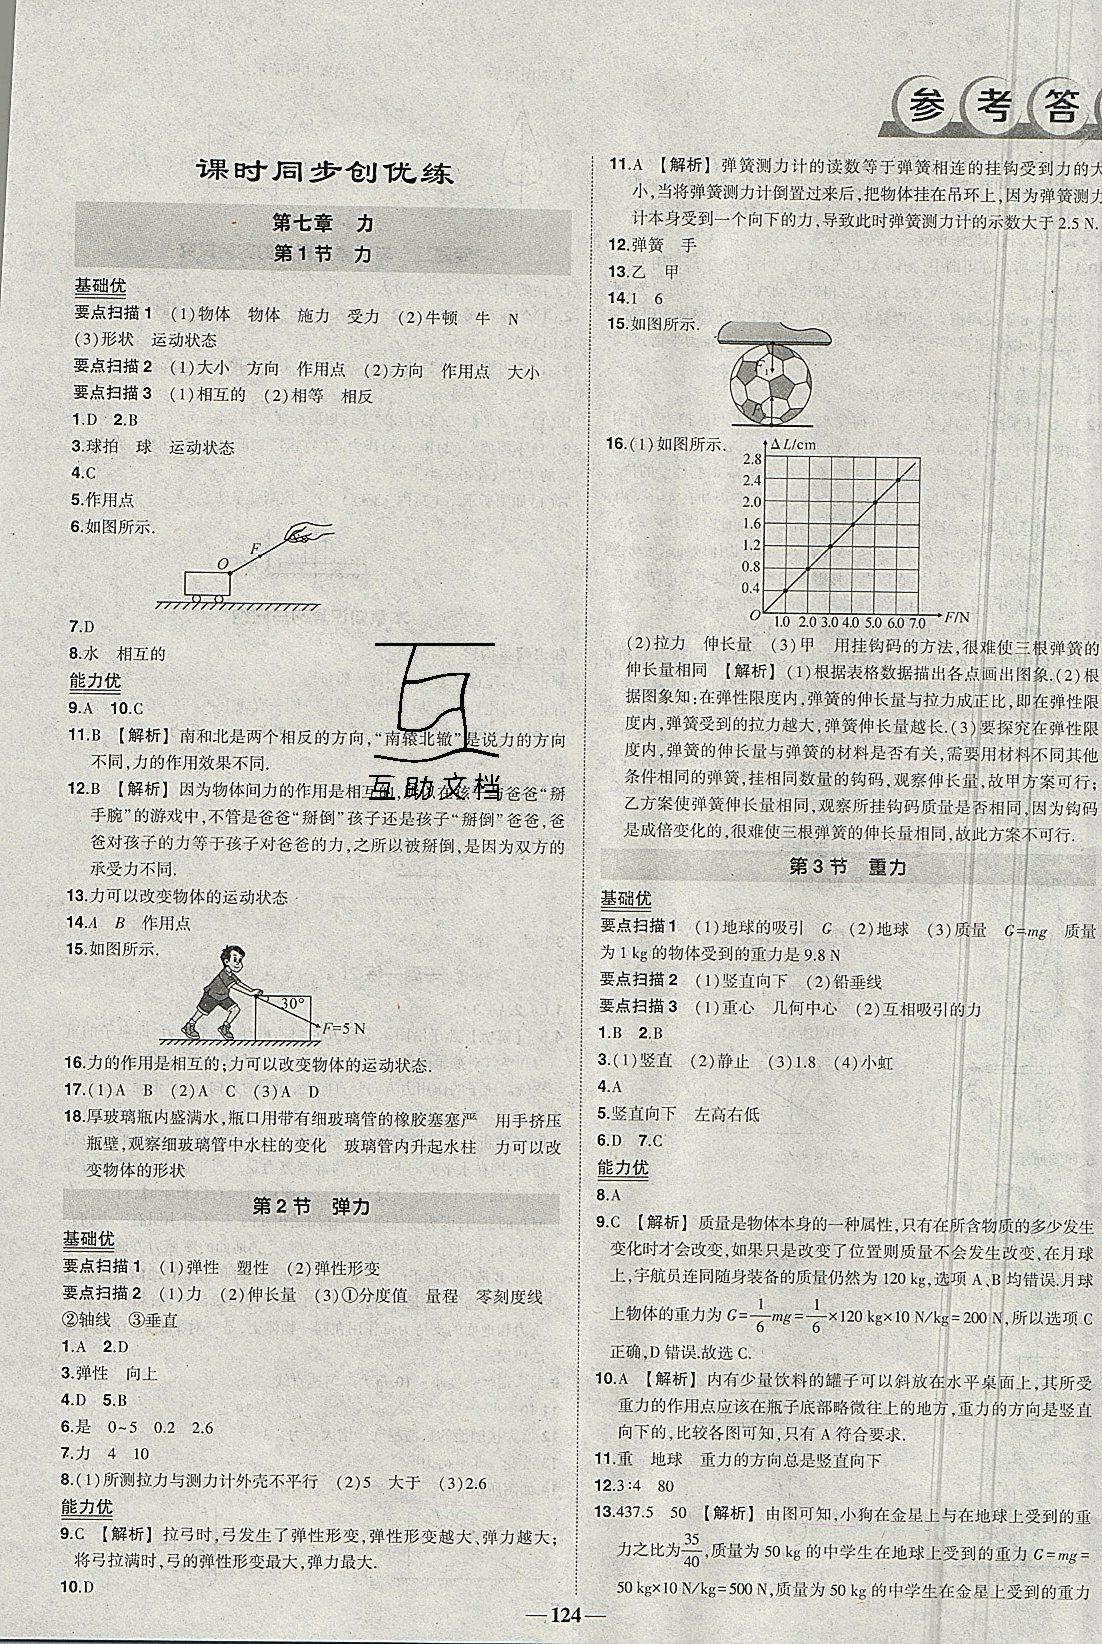 参考答
课时同步创优练
第七章 力
第1节 力
基础优
要点扫描1 (1)物体 物体 施力 受力 (2)牛顿 牛 N
(3)形状 运动状态
要点扫描2 (1)大小 方向 作用点 (2)方向 作用点 大小
要点扫描3 (1)相互的 (2)相等 相反
1.D 2.B
3.球拍 球 运动状态
4.C
5.作用点
6.如图所示.
F
O
7.D
8.水 相互的
能力优
9.A 10.C
11.B 【解析】南和北是两个相反的方向,“南辕北辙”是说力的方向
不同,力的作用效果不同.
12.B 【解析】因为物体间力的作用是相互的,所以在孩子与爸爸“掰
手腕”的游戏中,不管是爸爸“掰倒”孩子还是孩子“掰倒”爸爸,爸
爸对孩子的力等于孩子对爸爸的力,之所以被掰倒,是因为双方的
承受力不同.
13.力可以改变物体的运动状态
14.A B 作用点
15.如图所示.
30°
F=5 N
16.力的作用是相互的;力可以改变物体的运动状态.
17.(1)A B (2)A C (3)A D
18.厚玻璃瓶内盛满水,瓶口用带有细玻璃管的橡胶塞塞严 用手挤压
瓶壁,观察细玻璃管中水柱的变化 玻璃管内升起水柱 力可以改
变物体的形状
第2节 弹力
基础优
要点扫描1 (1)弹性 塑性 (2)弹性形变
要点扫描2 (1)力 (2)伸长量 (3)①分度值 量程 零刻度线
②轴线 ③垂直
1.A 2.D
3.弹性 向上
4.D 5.B
6.是 0~5 0.2 2.6
7.力 4 10
8.(1)所测拉力与测力计外壳不平行 (2)5 大于 (3)2.6
能力优
9.C 【解析】拉弓时,弓发生了弹性形变,弹性形变越大,弹力越大;
将弓拉满时,弓的弹性形变最大,弹力最大.
10.D
11.A 【解析】弹簧测力计的读数等于弹簧相连的挂钩受到力的大
小,当将弹簧测力计倒置过来后,把物体挂在吊环上,因为弹簧测力
计本身受到一个向下的力,导致此时弹簧测力计的示数大于2.5 N.
12.弹簧 手
13.乙 甲
14.1 6
15.如图所示.
F₁
F
16.(1)如图所示.
ΔL/cm
2.8
2.4
2.0
1.6
1.2
0.8
0.4
O 1.0 2.0 3.0 4.0 5.0 6.0 7.0 F/N
(2)拉力 伸长量 (3)甲 用挂钩码的方法,很难使三根弹簧的
伸长量相同 【解析】(1)根据表格数据描出各点画出图象.(2)根
据图象知:在弹性限度内,弹簧的伸长量与拉力成正比,即在弹性限
度内,弹簧受到的拉力越大,弹簧伸长量越长.(3)要探究在弹性限
度内,弹簧的伸长量与弹簧的材料是否有关,需要用材料不同其他
条件相同的弹簧,挂相同数量的钩码,观察伸长量,故甲方案可行;
乙方案使弹簧伸长量相同,观察所挂钩码质量是否相同,因为钩码
是成倍变化的,很难使三根弹簧的伸长量相同,故此方案不可行.
第3节 重力
基础优
要点扫描1 (1)地球的吸引 G (2)地球 (3)质量 G=mg 质量
为1 kg的物体受到的重力是9.8 N
要点扫描2 (1)竖直向下 (2)铅垂线
要点扫描3 (1)重心 几何中心 (2)互相吸引的力
1.B 2.B
3.(1)竖直 (2)静止 (3)1.8 (4)小虹
4.A
5.竖直向下 左高右低
6.D 7.C
能力优
8.A
9.C 【解析】质量是物体本身的一种属性,只有在所含物质的多少发生
变化时才会改变,如果只是改变了位置则质量不会发生改变,在月球
上,宇航员连同随身装备的质量仍然为120 kg,选项A、B均错误.月球
上物体的重力为G=1/6mg=1/6×120 kg×10 N/kg=200 N,所以选项C
正确,D错误.故选C.
10.A 【解析】内有少量饮料的罐子可以斜放在水平桌面上,其所受
重力的作用点应该在瓶子底部略微往上的地方,重力的方向是竖直
向下的,比较各图可知,只有A符合要求.
11.重 地球 重力的方向总是竖直向下
12.3∶4 80
13.437.5 50 【解析】由图可知,小狗在金星上与在地球上受到的重
力之比为35/40,质量为50 kg的中学生在地球上受到的重力G=mg=
50 kg×10 N/kg=500 N,质量为50 kg的中学生在金星上受到的重力
124
互助文档